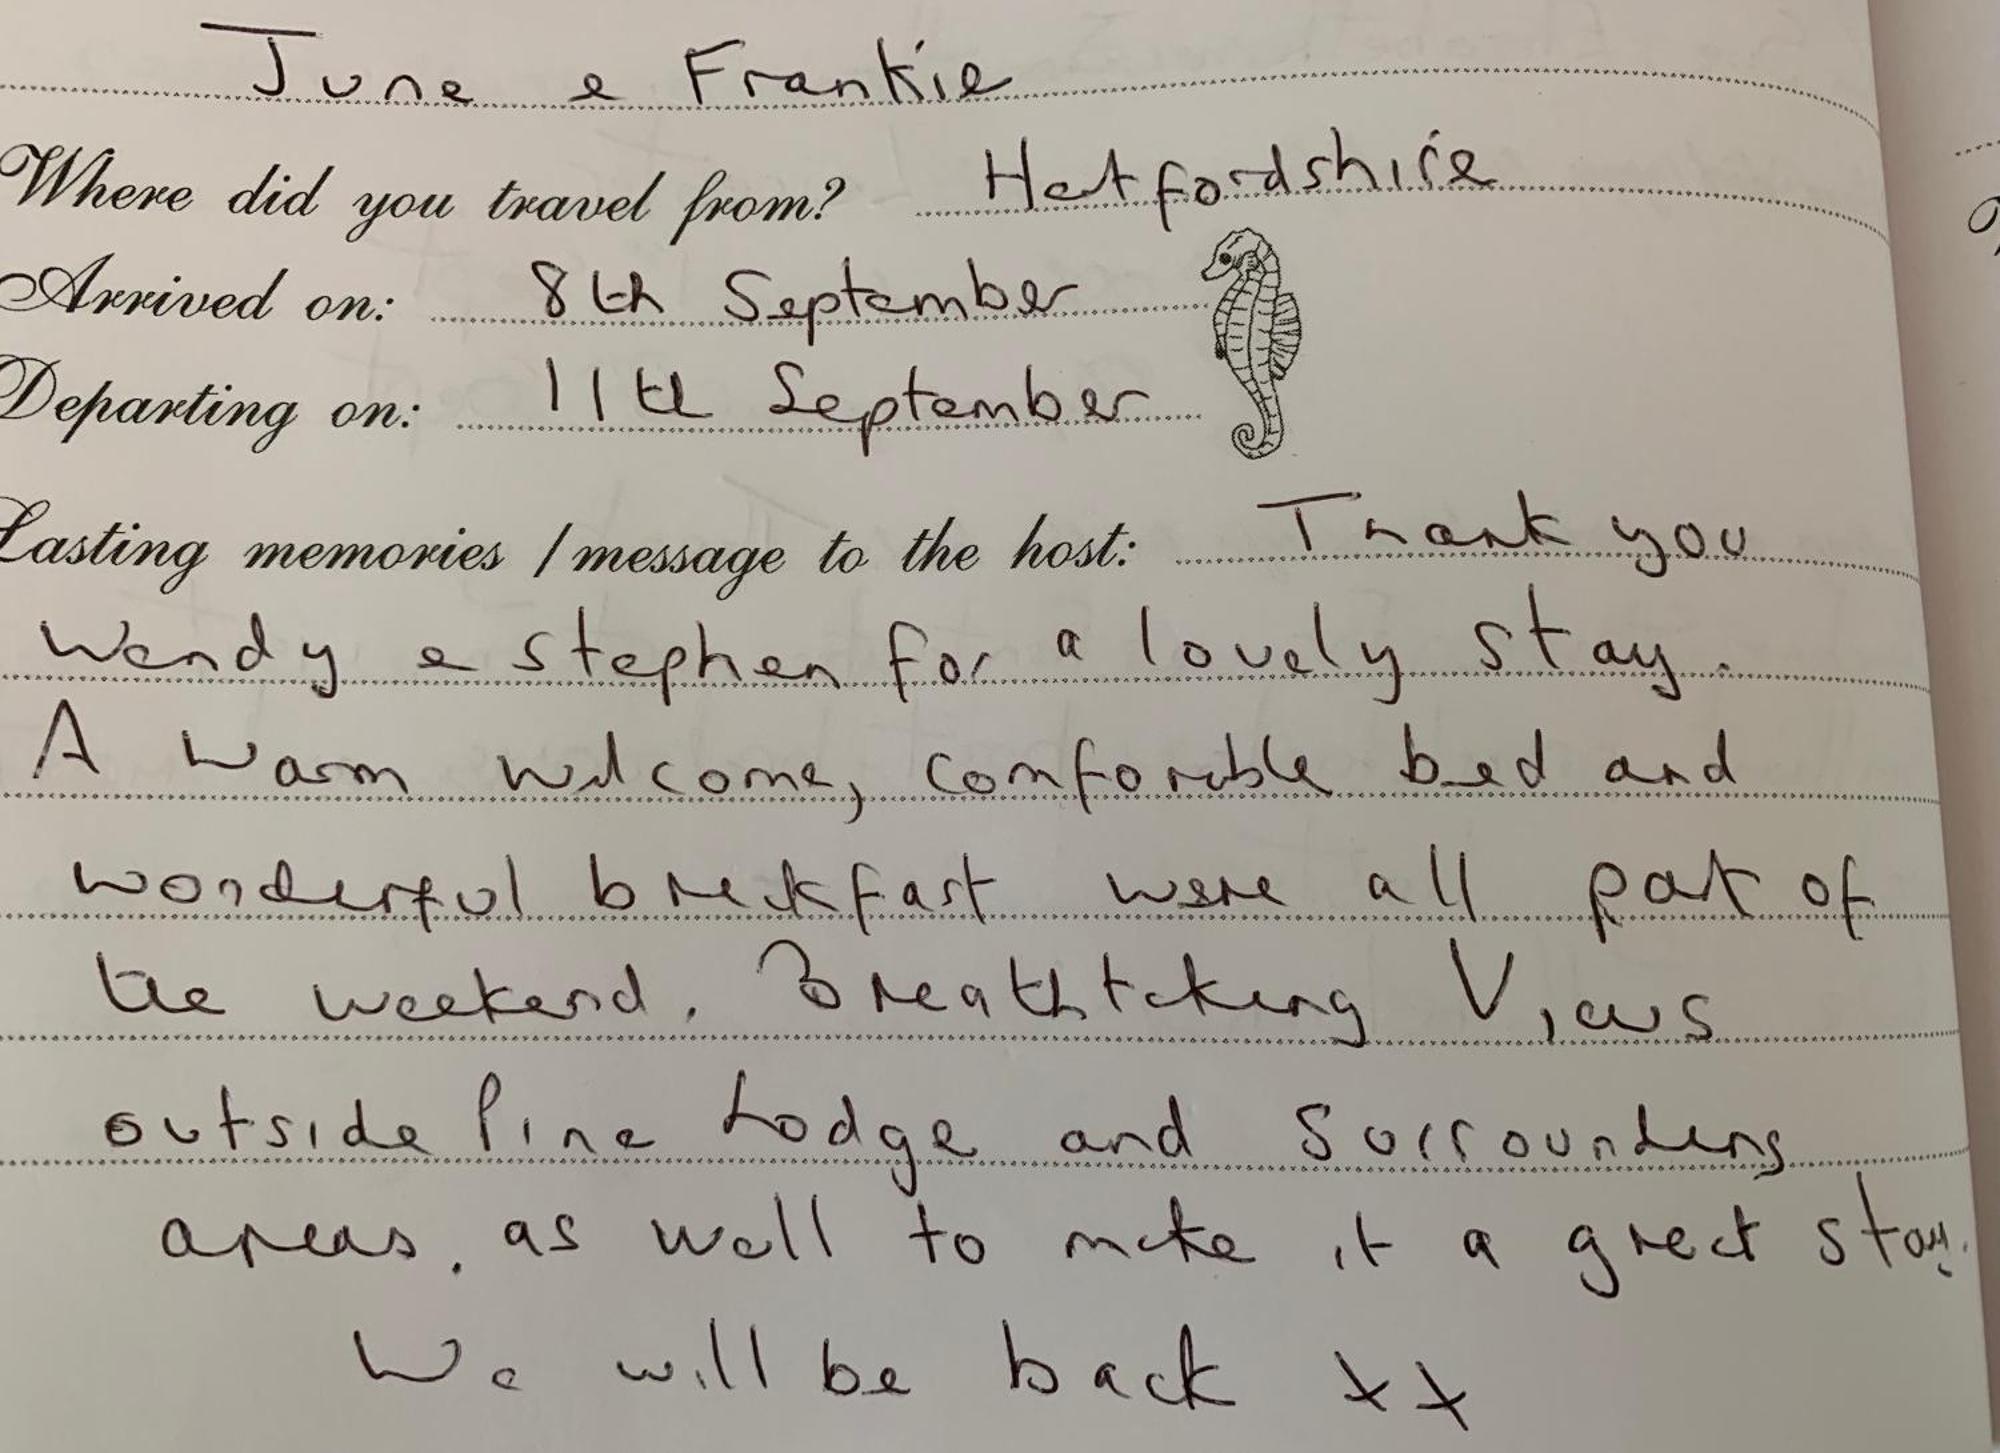 June & Frankie
Where did you travel from? Hertfordshire
Arrived on: 8th September
Departing on: 11th September
Lasting memories / message to the host: Thank you
Wendy & Stephen for a lovely stay.
A warm welcome, comforable bed and
wonderful breakfast were all part of
the weekend. Breathtaking Views
outside Pine Lodge and Surrounding
areas. as well to make it a great stay.
We will be back xx